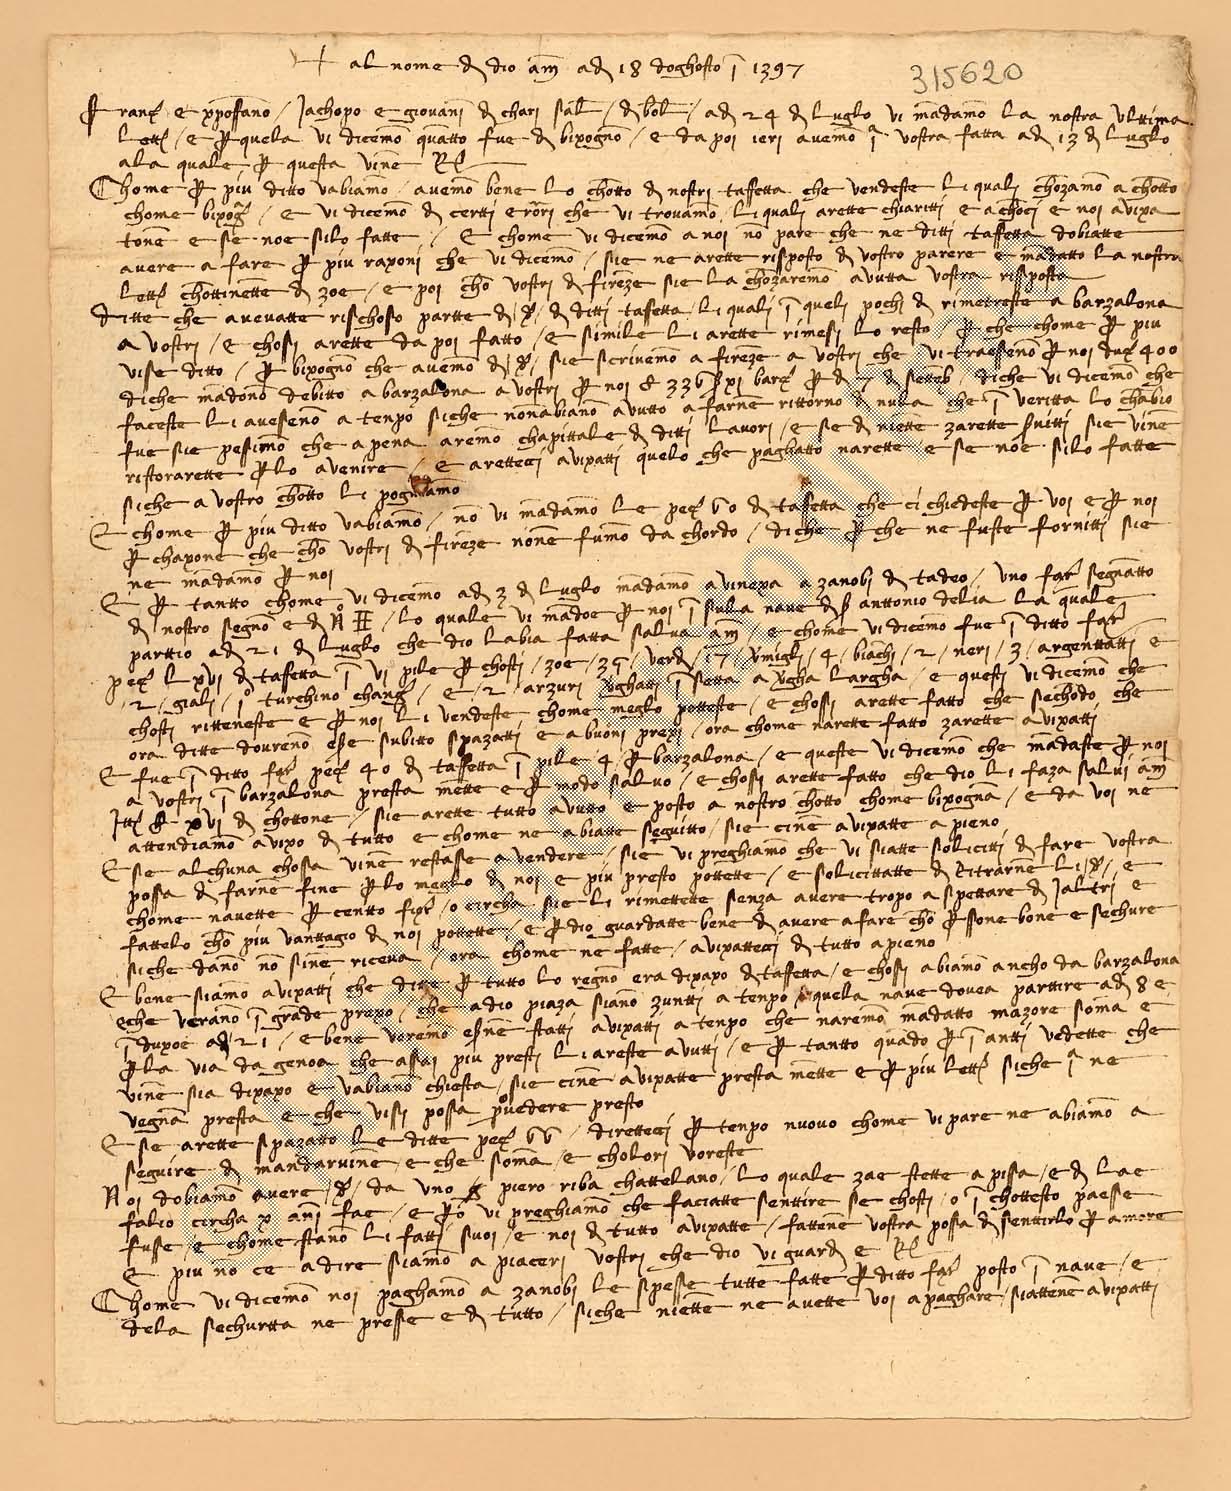 + al nome de dio am ad 18 doghosto 1397
315620
Franc e xpoffano / Jachopo e giovani de chari sal / de bol / ad 24 de luglo vi madamo la nostra ultima
lett / e per quela vi dicemo quatto fue de bixogno / e da poi ieri avemo 1a vostra fatta ad 13 de luglo
ala quale per questa vine R
Chome per piu ditto vabiamo / avemo bene lo chotto de nostri taffetta che vendeste li quali chozamo a chotto
chome bixog / e vi dicemo de certti erori che vi trovamo / li quali arette chiaritti e achoci e noi avixa
tone e se noe silo fatte / E chome vi dicemo a noi no pare che ne ditti taffetta dobiatte
avere a fare per piu raxoni che vi dicemo / sie ne arette risposto de vostro parere e madatto la nostra
lett chottinette de zoe / e poi cho vostri de fireze sie la chozaremo avutta vostra rissposta
ditte che avevatte rischoso partte de / de ditti taffetta / li quali i queli pochi de rimetreste a barzalona
a vostri / e chosi arette da poi fatto / e simile li arette rimesi lo resto / per che chome per piu
vise ditto / per bixogno che avemo de / sie scrivemo a fireze a vostri che vi traeseno per noi duc 400
diche madono debitto a barzalona a vostri per noi 336 xi barc per de 7 de setteb / diche vi dicemo che
faceste li aveseno a tenpo siche nonabiano avutto a farne rittorno nula che i veritta lo chabio
fue sie pesimo che apena aremo chapittale de ditti lavori / e se de niette zarette suitti sie vine
ristorarette per lo avenire / e arettezi avixatti quelo che paghatto narette e se noe silo fatte
siche a vostro chotto li pogniamo
E chome per piu ditto vabiamo / no vi madamo le pec 60 de taffetta che ci chiedeste per voi e per noi
per chaxone che cho vostri de fireze none fumo da chordo / diche per che ne fuste fornitti sie
ne madamo per noi
E per tantto chome vi dicemo ad 3 de luglo madamo a vinexa a zanobi de tadeo / uno far segnatto
de nostro segno e de N II / lo quale vi madoe per noi i sula nave de s antonio delia la quale
parttio ad 21 de luglo che dio labia fatta salva am / e chome vi dicemo fue i ditto far
pec lxvi de taffetta i vi pile per chosti / zoe / 39 / verd / 17 / vmigli / 4 / biachi / 2 / neri / 3 / argenttatti e
/ 2 / giali / 1 turchino chang / e / 2 / arzuri vghatti i setta a vgha largha / e questi vi dicemo che
chosti ritteneste e per noi li vendeste chome meglo potteste / e chosi arette fatto che sechodo che
ora ditte doureno ese subitto spazatti e a buoni prexi / ora chome narette fatto zarette avixatti
E fue i ditto far pec 40 de taffetta i pile 4 per barzalona / e queste vi dicemo che madaste per noi
a vostri i barzalona presta mette e per modo salvo / e chosi arette fatto che dio li faza salvi am
Itt xvi de chottone / sie arette tutto avutto e posto a nostro chotto chome bixogna / e da voi ne
attendiamo avixo de tutto e chome ne abiatte seguitto / sie cine avixatte a pieno
E se alchuna chossa vine restasse a vendere / sie vi preghiamo che vi siatte solicitti de fare vostra
possa de farne fine per lo meglo de noi e piu presto pottette / e solicittatte de ritrarne li / e
chome navette per centto fior / o circha sie li rimettete senza avere tropo a spettare de Jaltri e
fattelo cho piu vanttagio de noi pottette / e per dio guardatte bene de avere afare cho perssone bone e sechure
siche dano no sine riceva / ora chome ne fatte / avixattezi de tutto apieno
E bene siamo avixatti che ditte per tutto lo regno era dixaxo de taffetta / e chosi abiamo ancho da barzalona
che verano i grade prexo / che adio piaza siano zuntti a tenpo quela nave dovea parttire ad 8 e
i duxoe ad 21 / e bene voremo esne statti avixatti a tenpo che naremo madatto mazore soma e
per la via da genoa che assai piu presti li areste avutti / e per tantto quado per i antti vedette che
vine sia dixaxo e vabiano chiesta / sie cine avixatte presta mette e per piu lett siche 1a ne
vegna presta e che visi possa pvedere presto
E se arette spazatto le ditte pec 66 / direttezi per tenpo nuovo chome vi pare ne abiamo a
seguire de mandarvine / e che soma / e cholori voreste
Noi dobiamo avere / da uno piero riba chattelano / lo quale zae stette a pissa / e de lae
falio circha x ani fae / e pero vi preghiamo che faciatte senttire se chosti / o i chottesto paesse
fusse / e chome stano li fatti suoi / e noi de tutto avixatte / fattene vostra possa de senttirlo per amore
E piu no ce a dire siamo a piaceri vostri che dio vi guard e R
Chome vi dicemo noi paghamo a zanobi le spesse tutte fatte per ditto far posto i nave / e
dela sechurtta ne presse e de tutto / siche niette ne avette voi a paghare / siattene avixatti